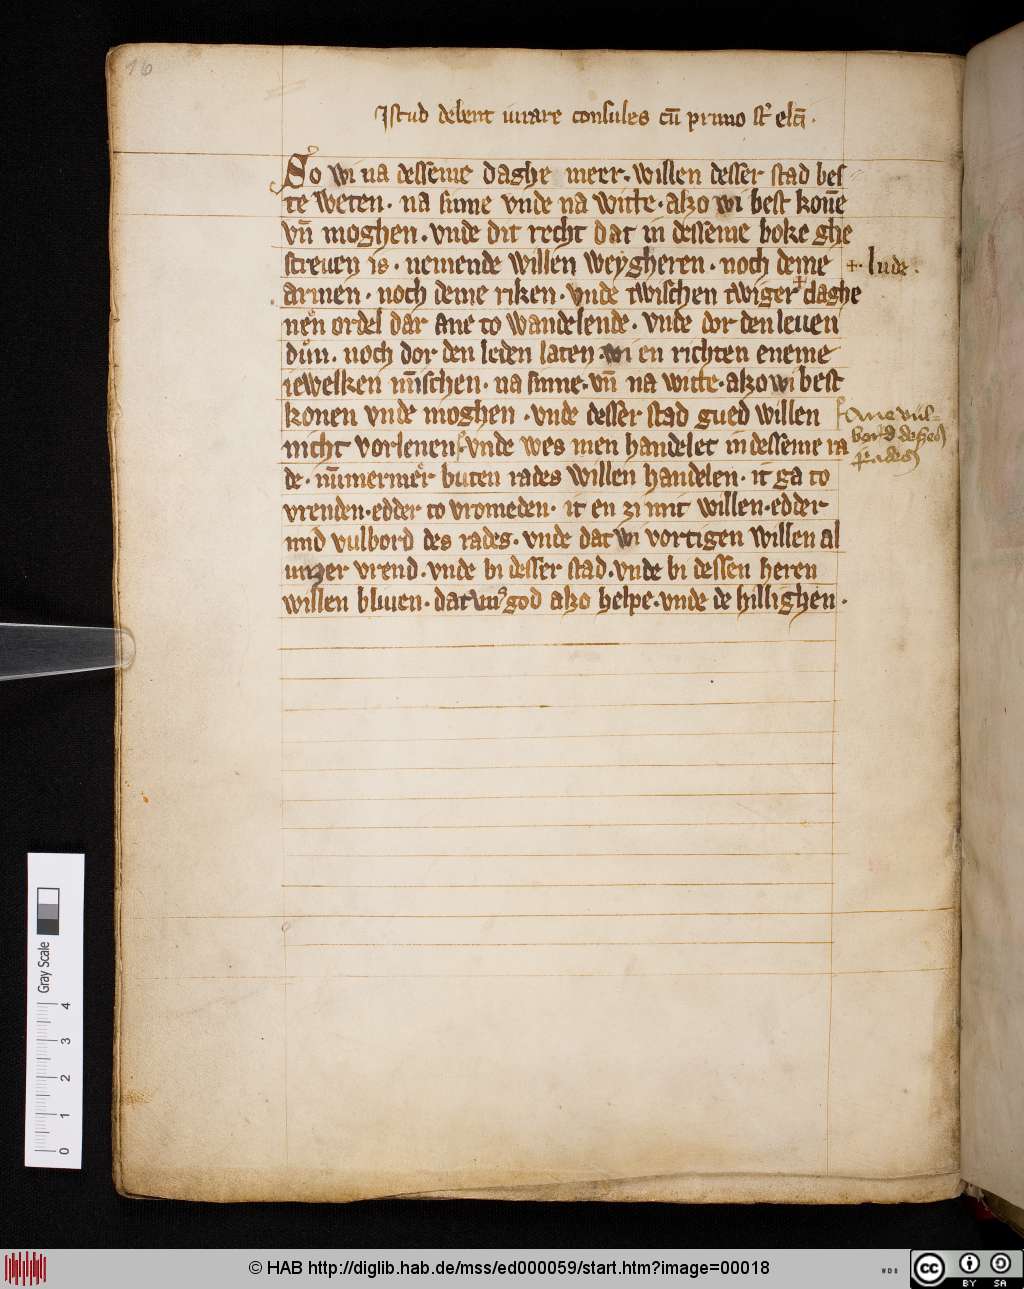 16
Istud debent iurare consules cū primo sͬt elcī ·
So wi na desseme daghe meer · willen desser stad bes
te weten · na sinne vnde na witte · alzo wi best kōne
vn̄ moghen · vnde dit recht dat in desseme boke ghe
screuen is · nemende willen weygheren · noch deme + · lude ·
armen · noch deme riken · vnde twischen twiger + daghe
nen ordel dar ane to wandelende · vnde dor den leuen
dun · noch dor den leiden laten · wi en richten eneme
iewelken mīschen · na sinne · vn̄ na witte · alzo wi best
konen vnde moghen · vnde desser stad gued willen
ane vul
nicht vorlenen · vnde wes men handelet in desseme ra
bord des
rades
de · nūmermer buten rades willen handelen · it ga to
vrenden · edder to vromeden · it en zi mit willen · edder
mid vulbord des rades · vnde dat wi vortigen willen al
unzer vrend · vnde bi desser stad · vnde bi dessen heren
willen bliuen · dat vnꝰ god alzo helpe · vnde de hillighen ·
Gray Scale
0 1 2 3 4
© HAB http://diglib.hab.de/mss/ed000059/start.htm?image=00018
WDB
cc BY SA